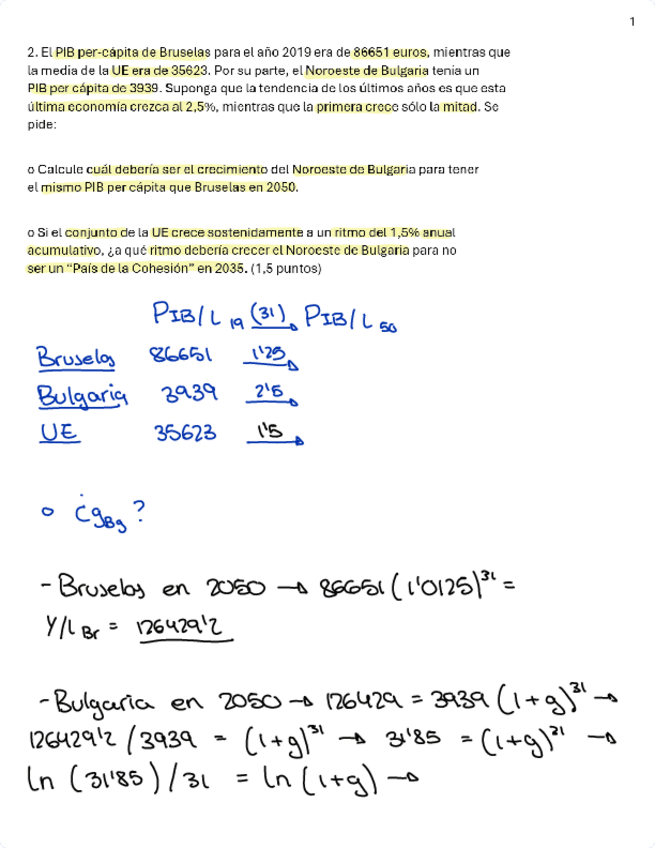 1
2. El PIB per-cápita de Bruselas para el año 2019 era de 86651 euros, mientras que
la media de la UE era de 35623. Por su parte, el Noroeste de Bulgaria tenia un
PIB per cápita de 3939. Suponga que la tendencia de los últimos años es que esta
última economía crezca al 2,5%, mientras que la primera crece sólo la mitad. Se
pide:
o Calcule cuál debería ser el crecimiento del Noroeste de Bulgaria para tener
el mismo PIB per cápita que Bruselas en 2050.
o Si el conjunto de la UE crece sostenidamente a un ritmo del 1,5% anual
acumulativo, ¿a qué ritmo debería crecer el Noroeste de Bulgaria para no
ser un “País de la Cohesión” en 2035. (1,5 puntos)
PIB/L 19 (31) PIB/L 50
Bruselas 86651 1'25
Bulgaria 3939 2'5
UE 35623 1'5
o ¿g Bg?
- Bruselas en 2050 → 86651 (1'0125)^31 =
Y/L Br = 126429'2
- Bulgaria en 2050 → 126429 = 3939 (1+g)^31 →
126429'2 / 3939 = (1+g)^31 → 31'85 = (1+g)^31 →
ln (31'85) / 31 = ln (1+g) →